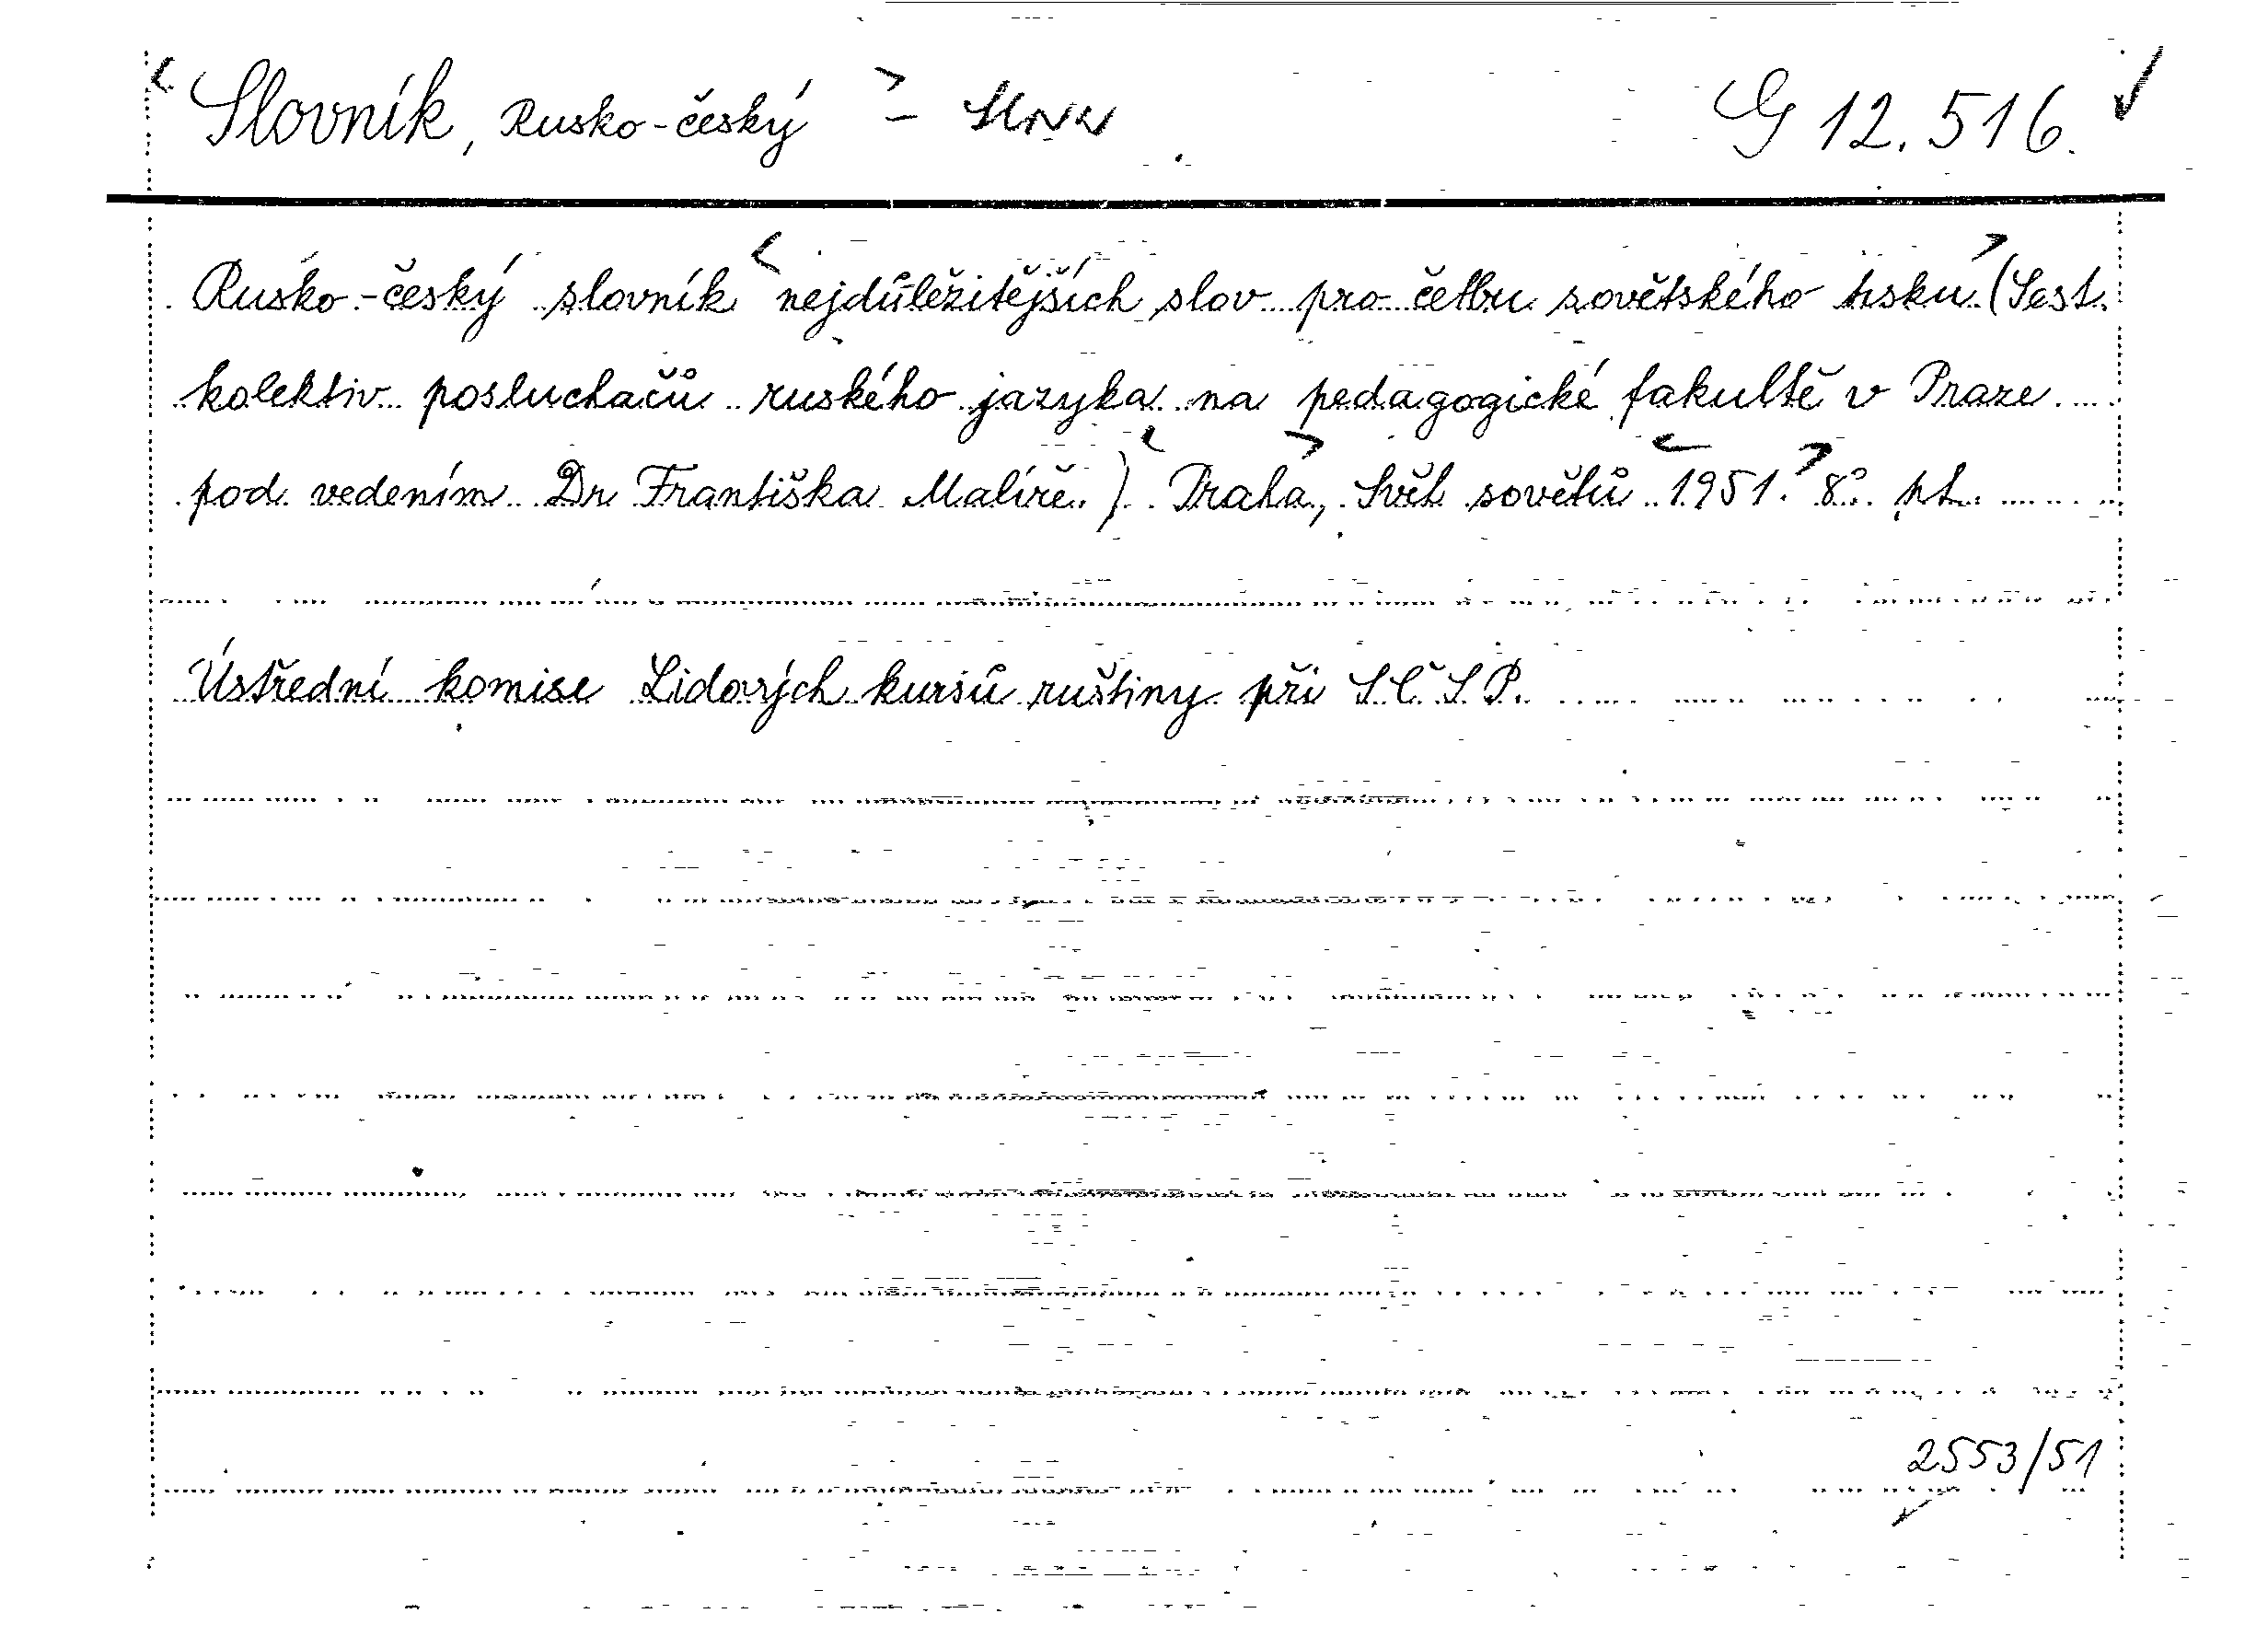 Slovník, Rusko-český – G 12.516.
Rusko-český slovník nejdůležitějších slov pro četbu sovětského tisku (Sest.
kolektiv posluchačů ruského jazyka na pedagogické fakultě v Praze
pod vedením Dr Františka Malíře.). Praha, Svět sovětů 1951. 8°.
Ústřední komise Lidových kursů ruštiny při S.Č.S.P.
2553/51